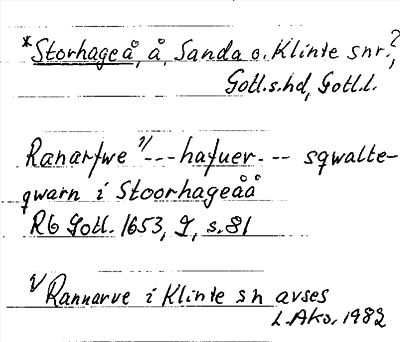 *Storhageå, å, Sanda o. Klinte snr?,
Gotl.s.hd, Gotl.l.
Ranarfwe 1/--- hafuer --- sqwalte-
qwarn i Stoorhageåå
Rb Gotl. 1653, I, s. 81
1/ Rannarve i Klinte sn avses
L.Aks. 1982